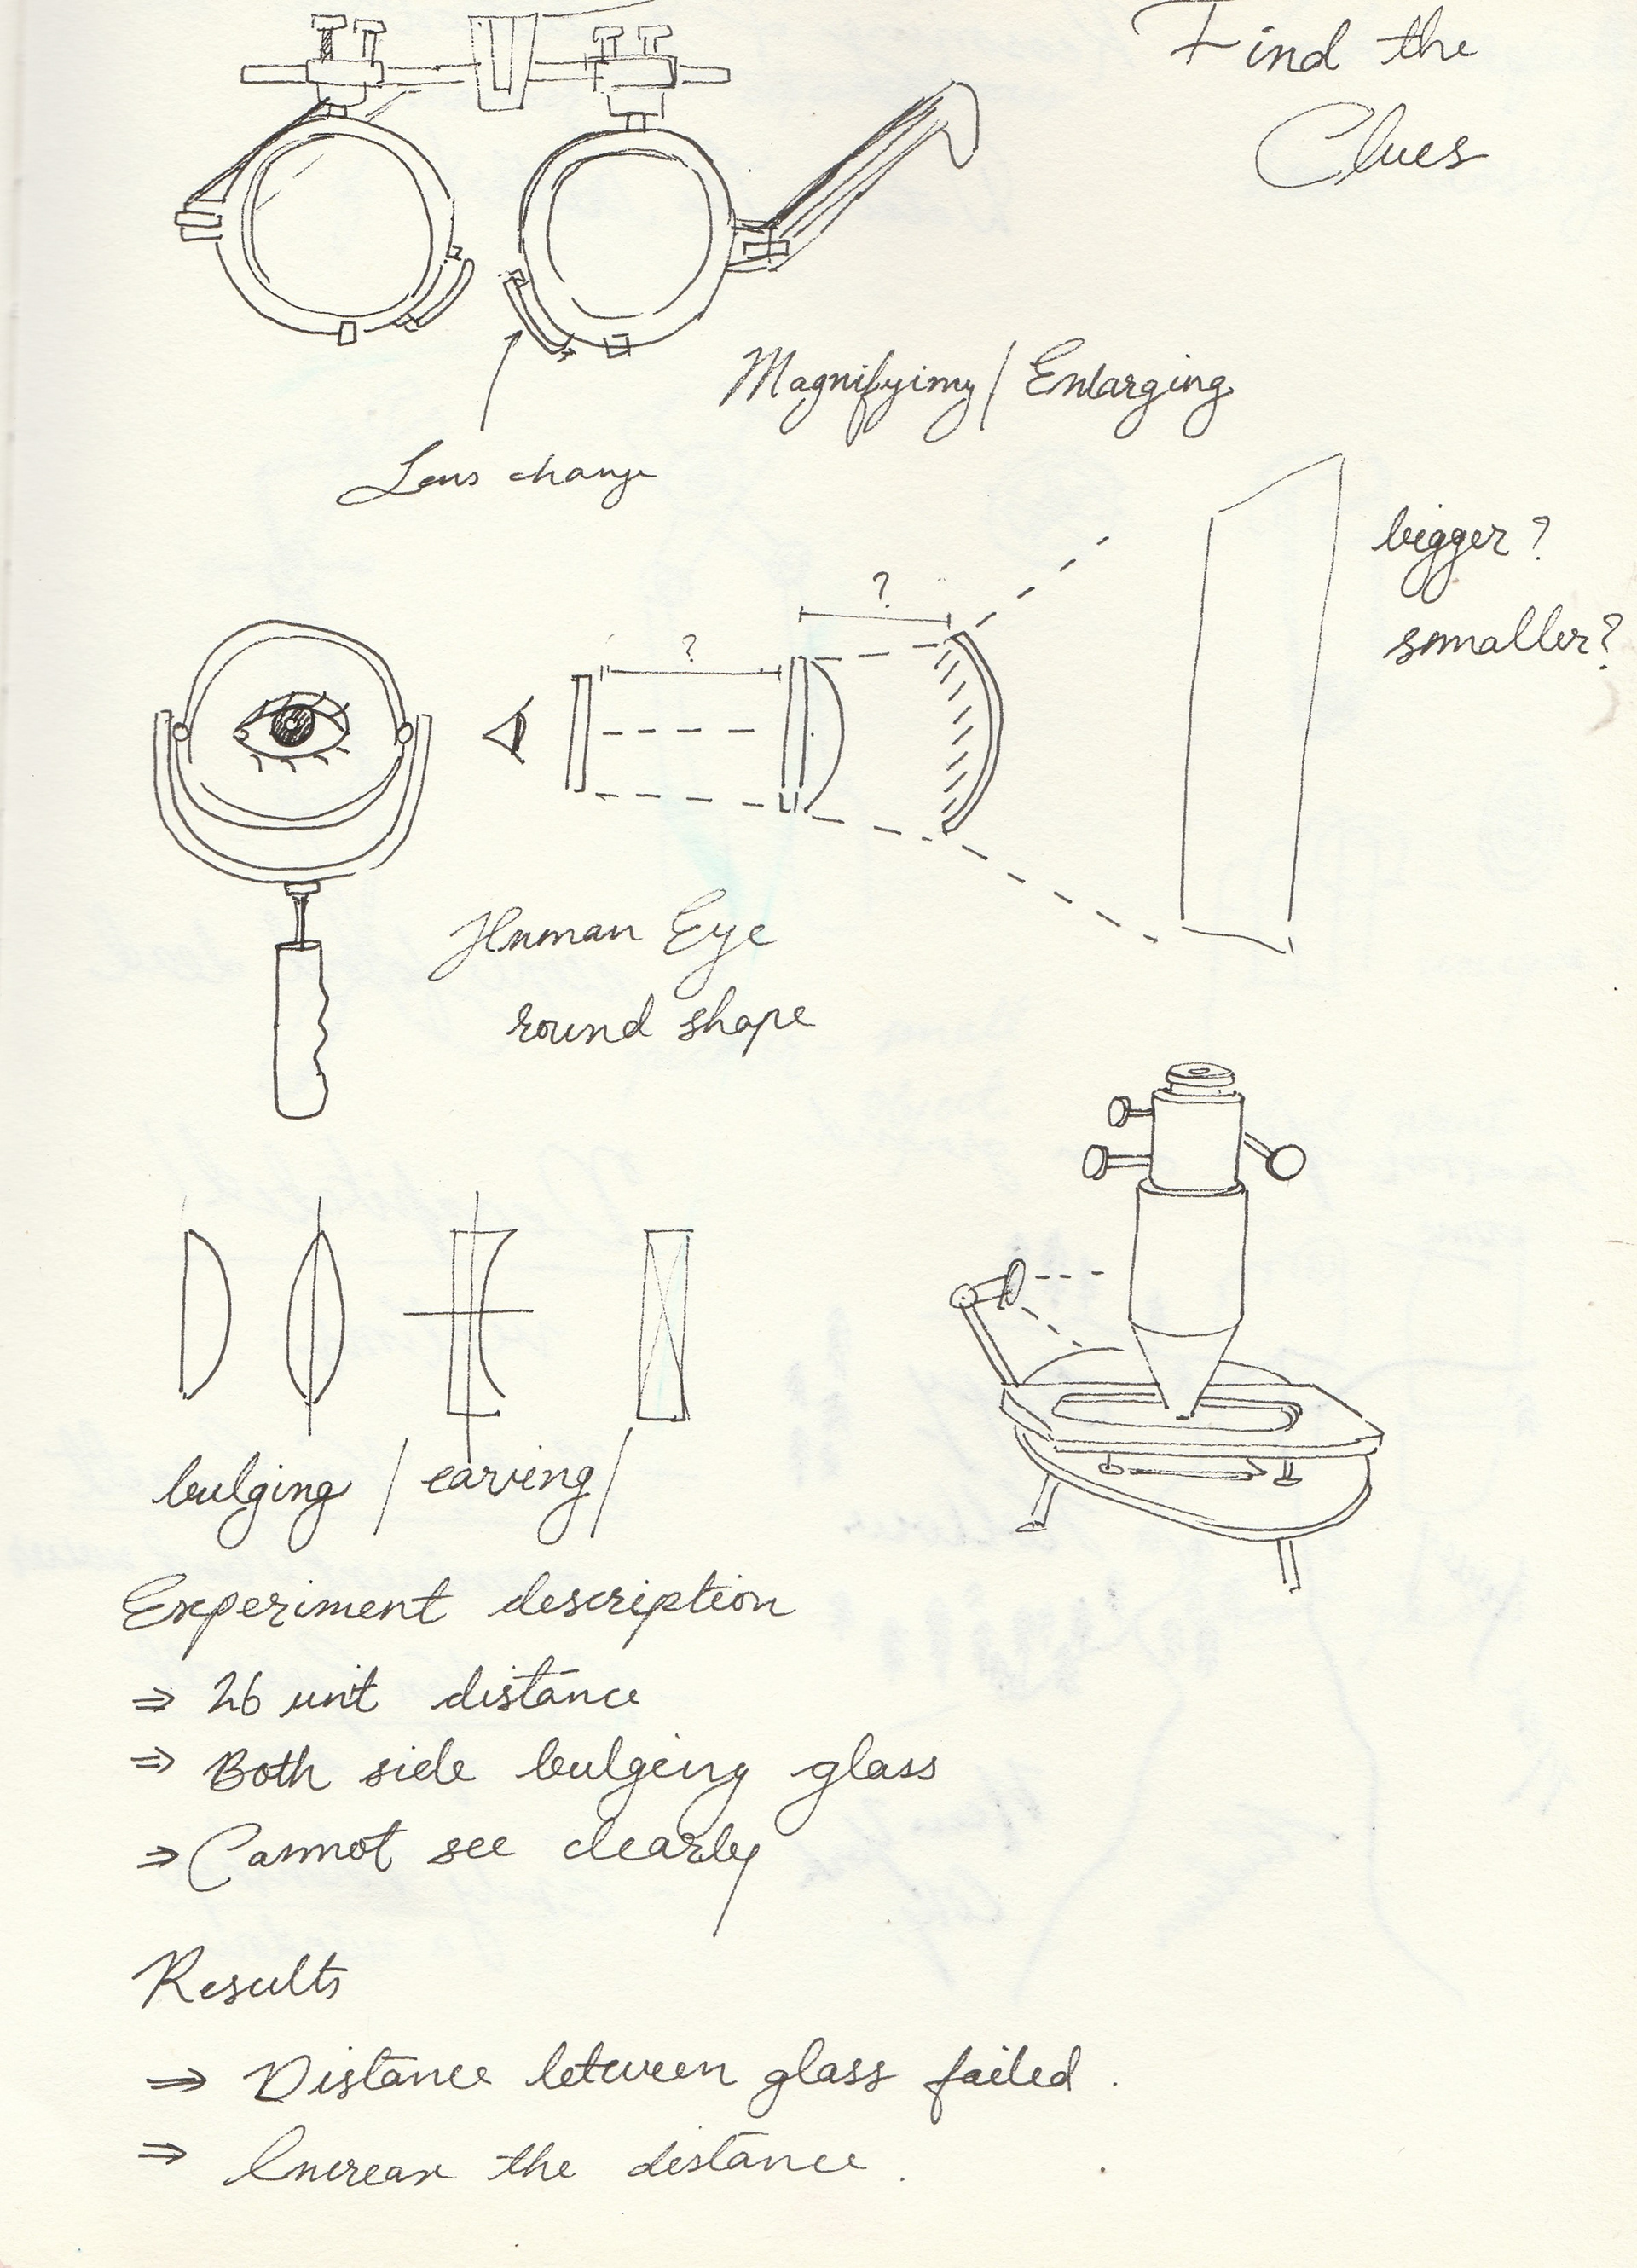 Find the
Clues
Magnifyimg / Enlarging
Lens change
bigger ?
smaller?
?
?
Human Eye
round shape
bulging / carving /
Experiment description
⇒ 26 unit distance
⇒ Both side bulging glass
⇒ Cannot see clearly
Results
⇒ Distance between glass failed .
⇒ Increase the distance .